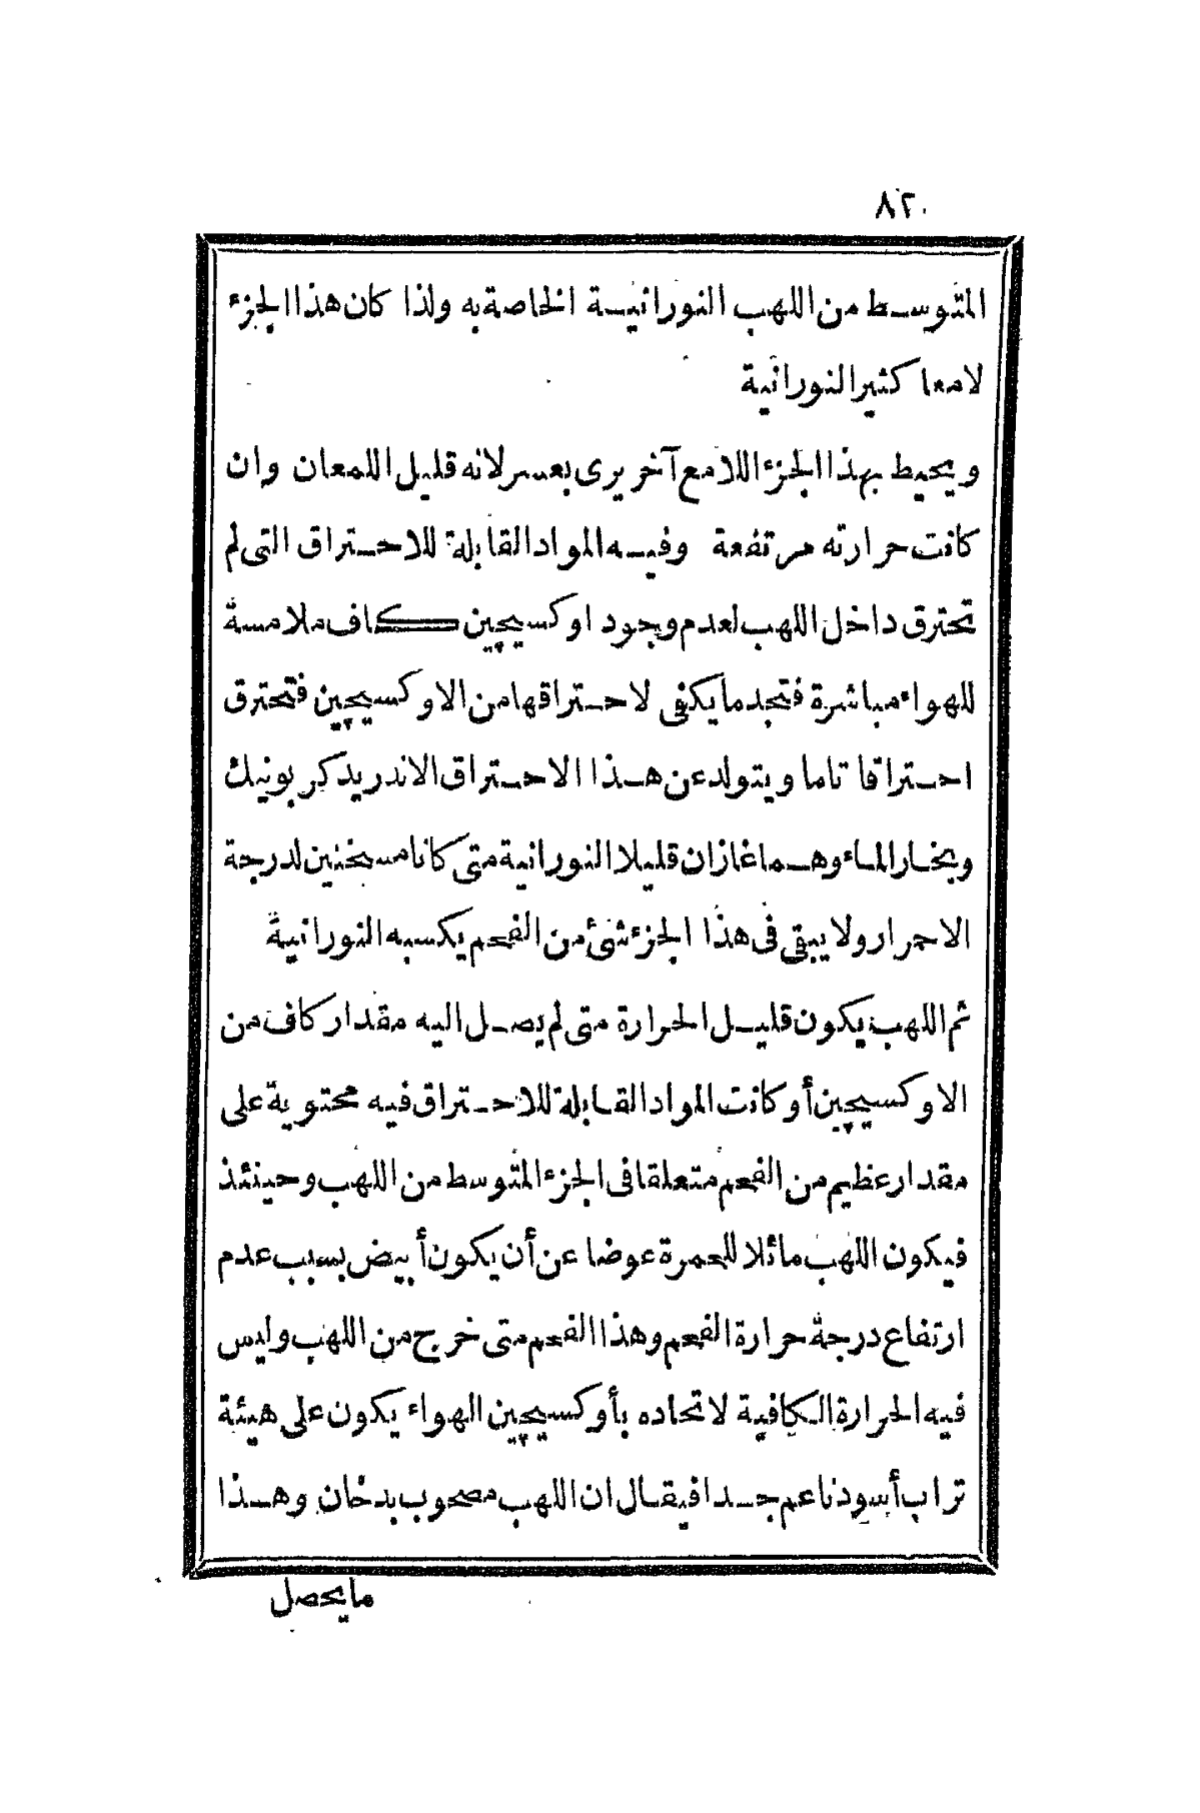 ٨٢
المتوسط من اللهب النورانية الخاصة به ولذا كان هذا الجزء
لامعا كثير النورانية
ويحيط بهذا الجزء اللامع آخر يرى بعسر لانه قليل اللمعان وان
كانت حرارته مرتفعة وفيه المواد القابلة للاحتراق التى لم
تحترق داخل اللهب لعدم وجود اوكسيچين كاف ملامسة
للهواء مباشرة فتجد ما يكفى لاحتراقها من الاوكسيچين فتحترق
احتراقا تاما ويتولد عن هذا الاحتراق الاندريد كربونيك
وبخار الماء وهما غازان قليلا النورانية متى كانا مسخنين لدرجة
الاحمرار ولا يبقى فى هذا الجزء شئ من الفحم يكسبه النورانية
ثم اللهب يكون قليل الحرارة متى لم يصل اليه مقدار كاف من
الاوكسيچين أو كانت المواد القابلة للاحتراق فيه محتوية على
مقدار عظيم من الفحم متعلقا فى الجزء المتوسط من اللهب وحينئذ
فيكون اللهب مائلا للحمرة عوضا عن أن يكون أبيض بسبب عدم
ارتفاع درجة حرارة الفحم وهذا الفحم متى خرج من اللهب وليس
فيه الحرارة الكافية لاتحاده بأوكسيچين الهواء يكون على هيئة
تراب أسود ناعم جدا فيقال ان اللهب مصحوب بدخان وهذا
ما يحصل